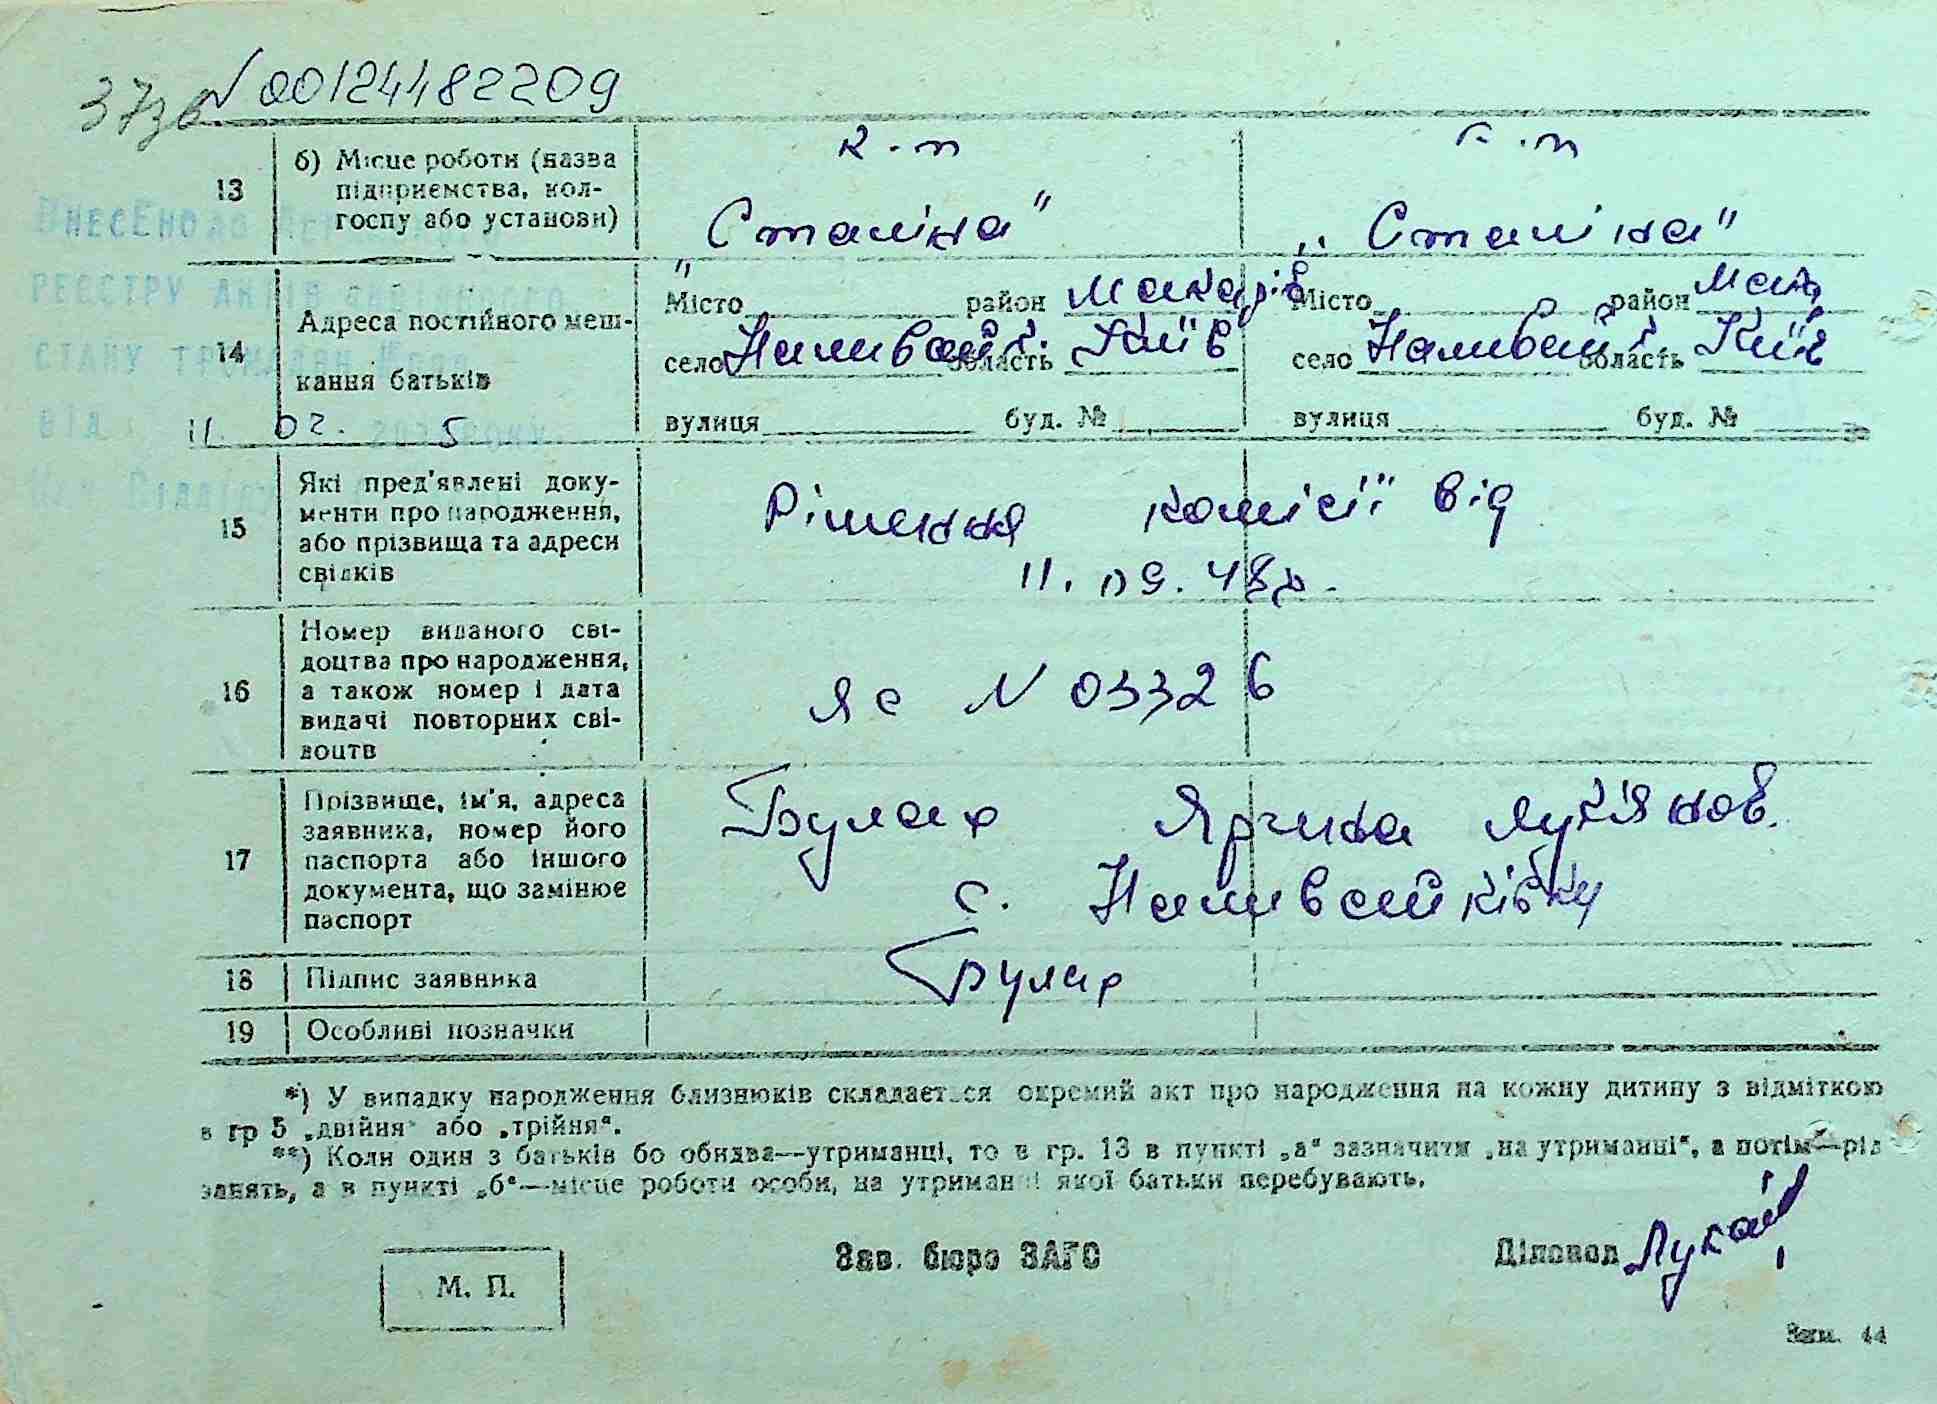 37зв N 00124482209
13 б) Місце роботи (назва підприємства, колгоспу або установи)
к-п "Сталіна"
к-п "Сталіна"
Внесено до Державного
реєстру актів цивільного
стану громадян
від 11. 02. 5 року
14 Адреса постійного мешкання батьків
Місто район Макарів
село Наливайк. область Київ
вулиця буд. №
Місто район Мака
село Наливайк. область Київ
вулиця буд. №
15 Які пред'явлені документи про народження, або прізвища та адреси свідків
Рішення комісії від
11.09.48р.
16 Номер виданого свідоцтва про народження, а також номер і дата видачі повторних свідоцтв
ЯС N 03326
17 Прізвище, ім'я, адреса заявника, номер його паспорта або іншого документа, що замінює паспорт
Булах Ярина Лук'янов.
с. Наливайківку
18 Підпис заявника
Булах
19 Особливі позначки
*) У випадку народження близнюків складається окремий акт про народження на кожну дитину з відміткою
в гр 5 „двійня" або „трійня".
**) Коли один з батьків бо обидва—утриманці, то в гр. 13 в пункті „а" зазначити „на утриманні", а потім—рід
занять, а в пункті „б"—місце роботи особи, на утриманні якої батьки перебувають.
М. П.
Зав. бюро ЗАГС
Діловод
Зам. 44